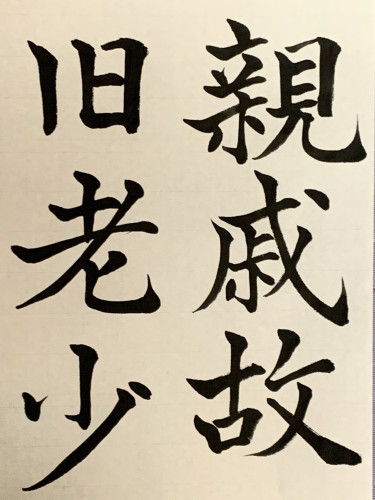 親戚故
旧老少